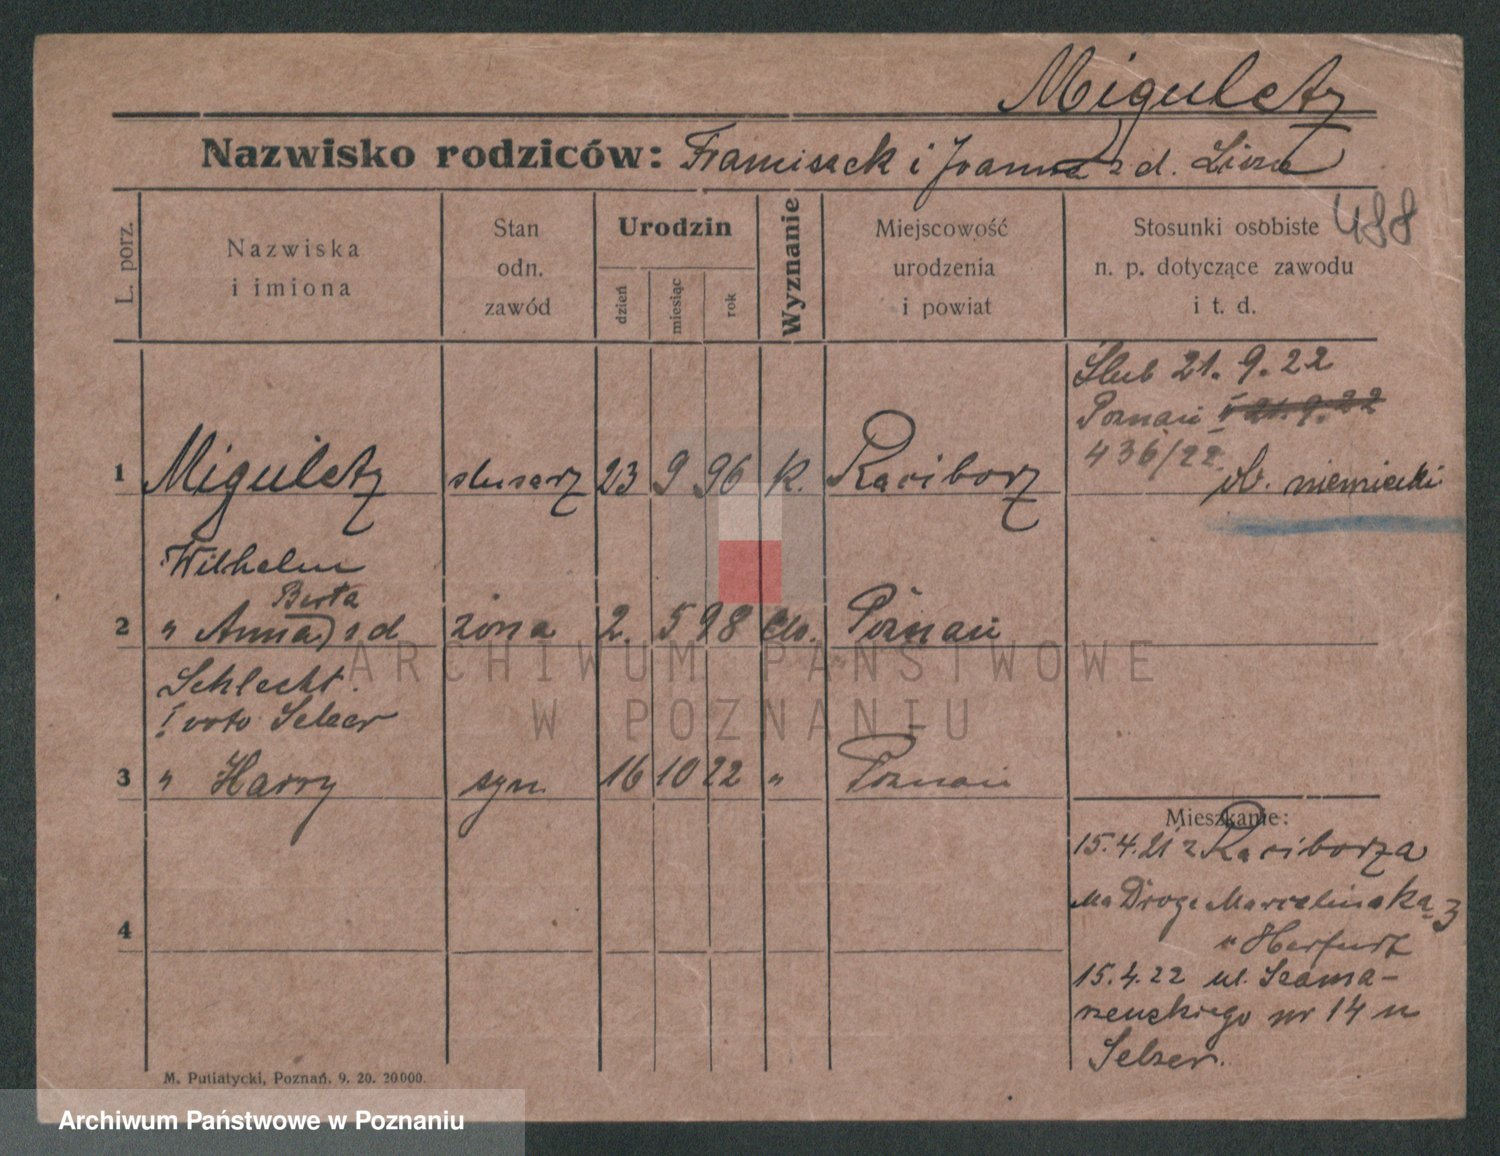 Miguletz
Nazwisko rodziców: Franciszek i Joanna z d. Lizze
488
L. porz.
Nazwiska
i imiona
Stan
odn.
zawód
Urodzin
dzień
miesiąc
rok
Wyznanie
Miejscowość
urodzenia
i powiat
Stosunki osobiste
n. p. dotyczące zawodu
i t. d.
Ślub 21. 9. 22
Poznań 21.9.22
436/22
1 Miguletz ślusarz 23 9 96 k. Raciborz
niemiecki
Wilhelm
Berta
2 " Anna z d żona 2. 5 98 Poznań
Schlecht.
I voto Selzer
3 " Harry syn 16 10 22 " Poznań
4
Mieszkanie:
15.4.21 z Raciborza
na Drogę Marcelińską 3
u Herfurt
15.4.22 ul. Szama-
rzewskiego nr 14 u
Selzer.
M. Putiatycki, Poznań. 9. 20. 20000.
ARCHIWUM PAŃSTWOWE
W POZNANIU
Archiwum Państwowe w Poznaniu